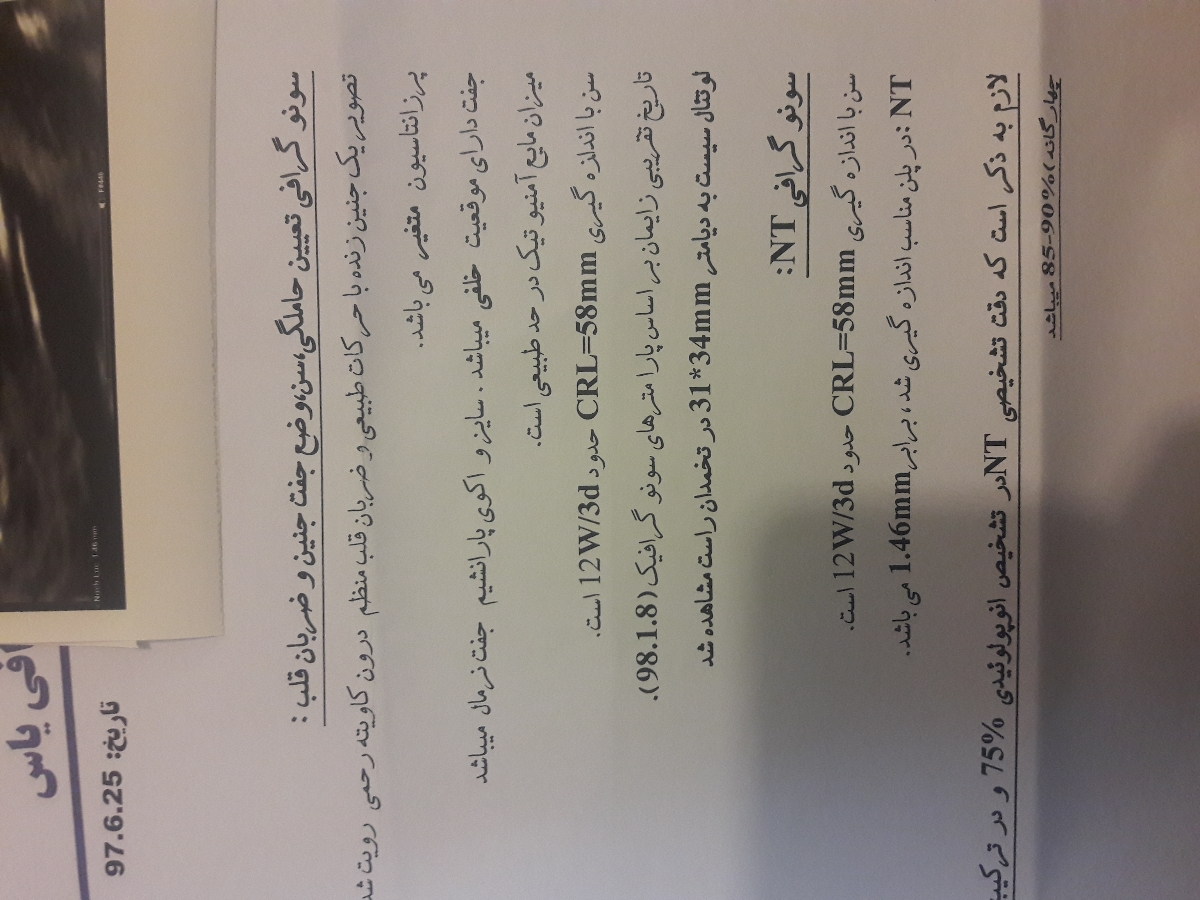 افی یاس
تاریخ: 97.6.25
Nuch Luc 1.46 mm
سونو گرافی تعیین حاملگی،سن،وضع جفت جنین و ضربان قلب :
تصویر یک جنین زنده با حرکات طبیعی و ضربان قلب منظم درون کاویته رحمی رویت شد
پرزانتاسیون متغیر می باشد.
جفت دارای موقعیت خلفی میباشد . سایز و اکوی پارانشیم جفت نرمال میباشد
میزان مایع آمنیو تیک در حد طبیعی است.
سن با اندازه گیری CRL=58mm حدود 12W/3d است.
تاریخ تقریبی زایمان بر اساس پارا مترهای سونو گرافیک (98.1.8).
لوتئال سیست به دیامتر 34mm*31 در تخمدان راست مشاهده شد
سونو گرافی NT:
سن با اندازه گیری CRL=58mm حدود 12W/3d است.
NT :در پلن مناسب اندازه گیری شد، برابر1.46mm می باشد.
لازم به ذکر است که دقت تشخیصی NTدر تشخیص انوپولوئیدی 75% و در ترکیب
چهارگانه )%90-85 میباشد